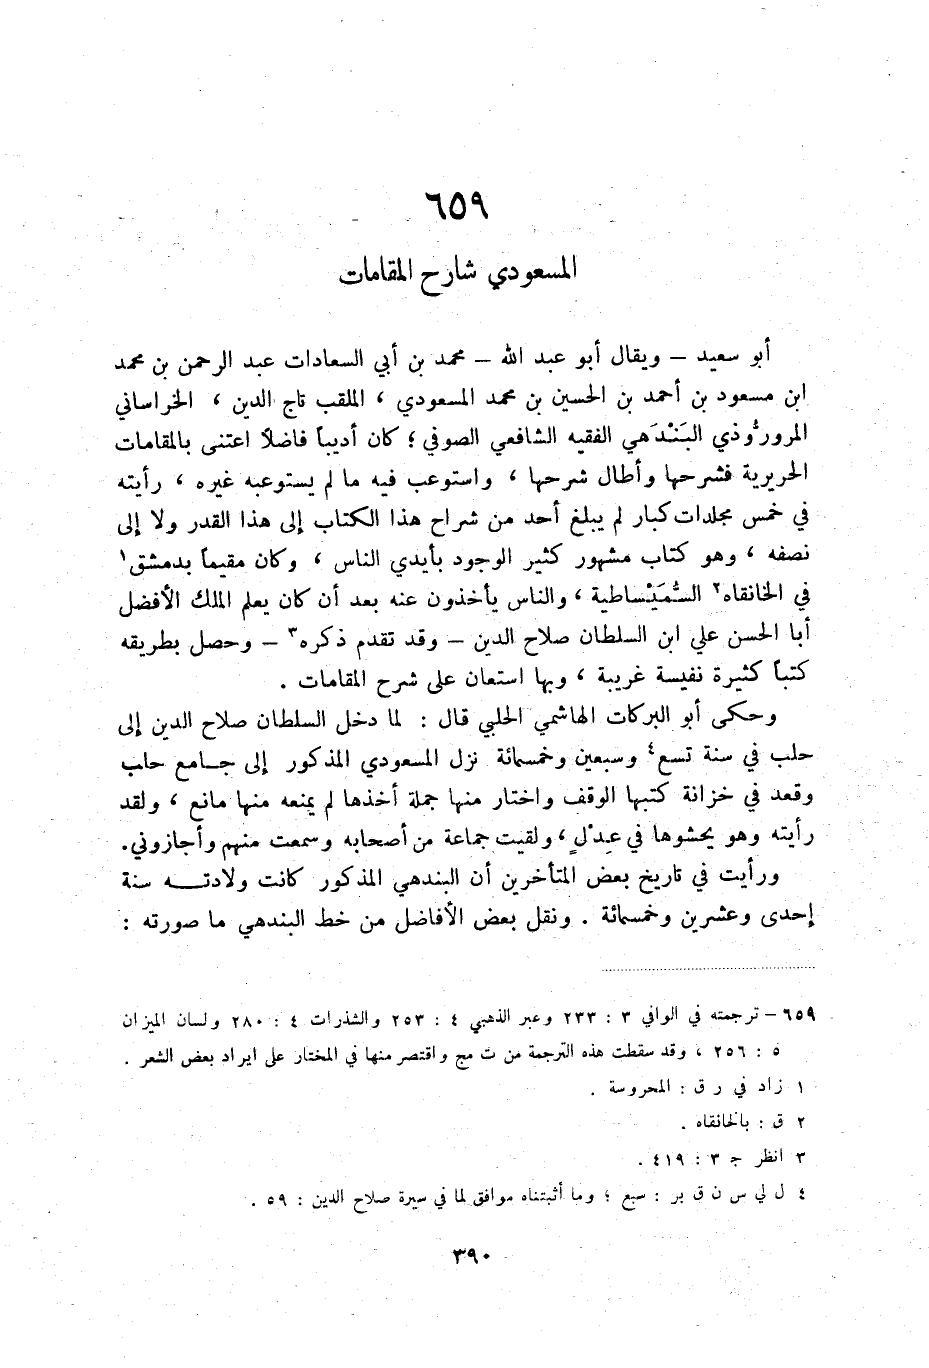 ٦٥٩
المسعودي شارح المقامات
أبو سعيد – ويقال أبو عبد الله – محمد بن أبي السعادات عبد الرحمن بن محمد
ابن مسعود بن أحمد بن الحسين بن محمد المسعودي ، الملقب تاج الدين ، الخراساني
المرورُّوذي البَنْدَهي الفقيه الشافعي الصوفي ؛ كان أديباً فاضلاً اعتنى بالمقامات
الحريرية فشرحها وأطال شرحها ، واستوعب فيه ما لم يستوعبه غيره ، رأيته
في خمس مجلدات كبار لم يبلغ أحد من شراح هذا الكتاب إلى هذا القدر ولا إلى
نصفه ، وهو كتاب مشهور كثير الوجود بأيدي الناس ، وكان مقيماً بدمشق١
في الخانقاه٢ السُّمَيْساطية ، والناس يأخذون عنه بعد أن كان يعلم الملك الأفضل
أبا الحسن علي ابن السلطان صلاح الدين – وقد تقدم ذكره٣ – وحصل بطريقه
كتباً كثيرة نفيسة غريبة ، وبها استعان على شرح المقامات .
وحكى أبو البركات الهاشمي الحلبي قال : لما دخل السلطان صلاح الدين إلى
حلب في سنة تسع٤ وسبعين وخمسمائة نزل المسعودي المذكور إلى جامع حلب
وقعد في خزانة كتبها الوقف واختار منها جملة أخذها لم يمنعه منها مانع ، ولقد
رأيته وهو يحشوها في عِدْلٍ ، ولقيت جماعة من أصحابه وسمعت منهم وأجازوني.
ورأيت في تاريخ بعض المتأخرين أن البندهي المذكور كانت ولادته سنة
إحدى وعشرين وخمسمائة . ونقل بعض الأفاضل من خط البندهي ما صورته :
٦٥٩ – ترجمته في الوافي ٣ : ٢٣٣ وعبر الذهبي ٤ : ٢٥٣ والشذرات ٤ : ٢٨٠ ولسان الميزان
٥ : ٢٥٦ ، وقد سقطت هذه الترجمة من ت مج واقتصر منها في المختار على ايراد بعض الشعر .
١ زاد في ر ق : المحروسة .
٢ ق : بالخانقاه .
٣ انظر ج ٣ : ٤١٩ .
٤ ل لي س ن ق بر : سبع ؛ وما أثبتناه موافق لما في سيرة صلاح الدين : ٥٩ .
٣٩٠